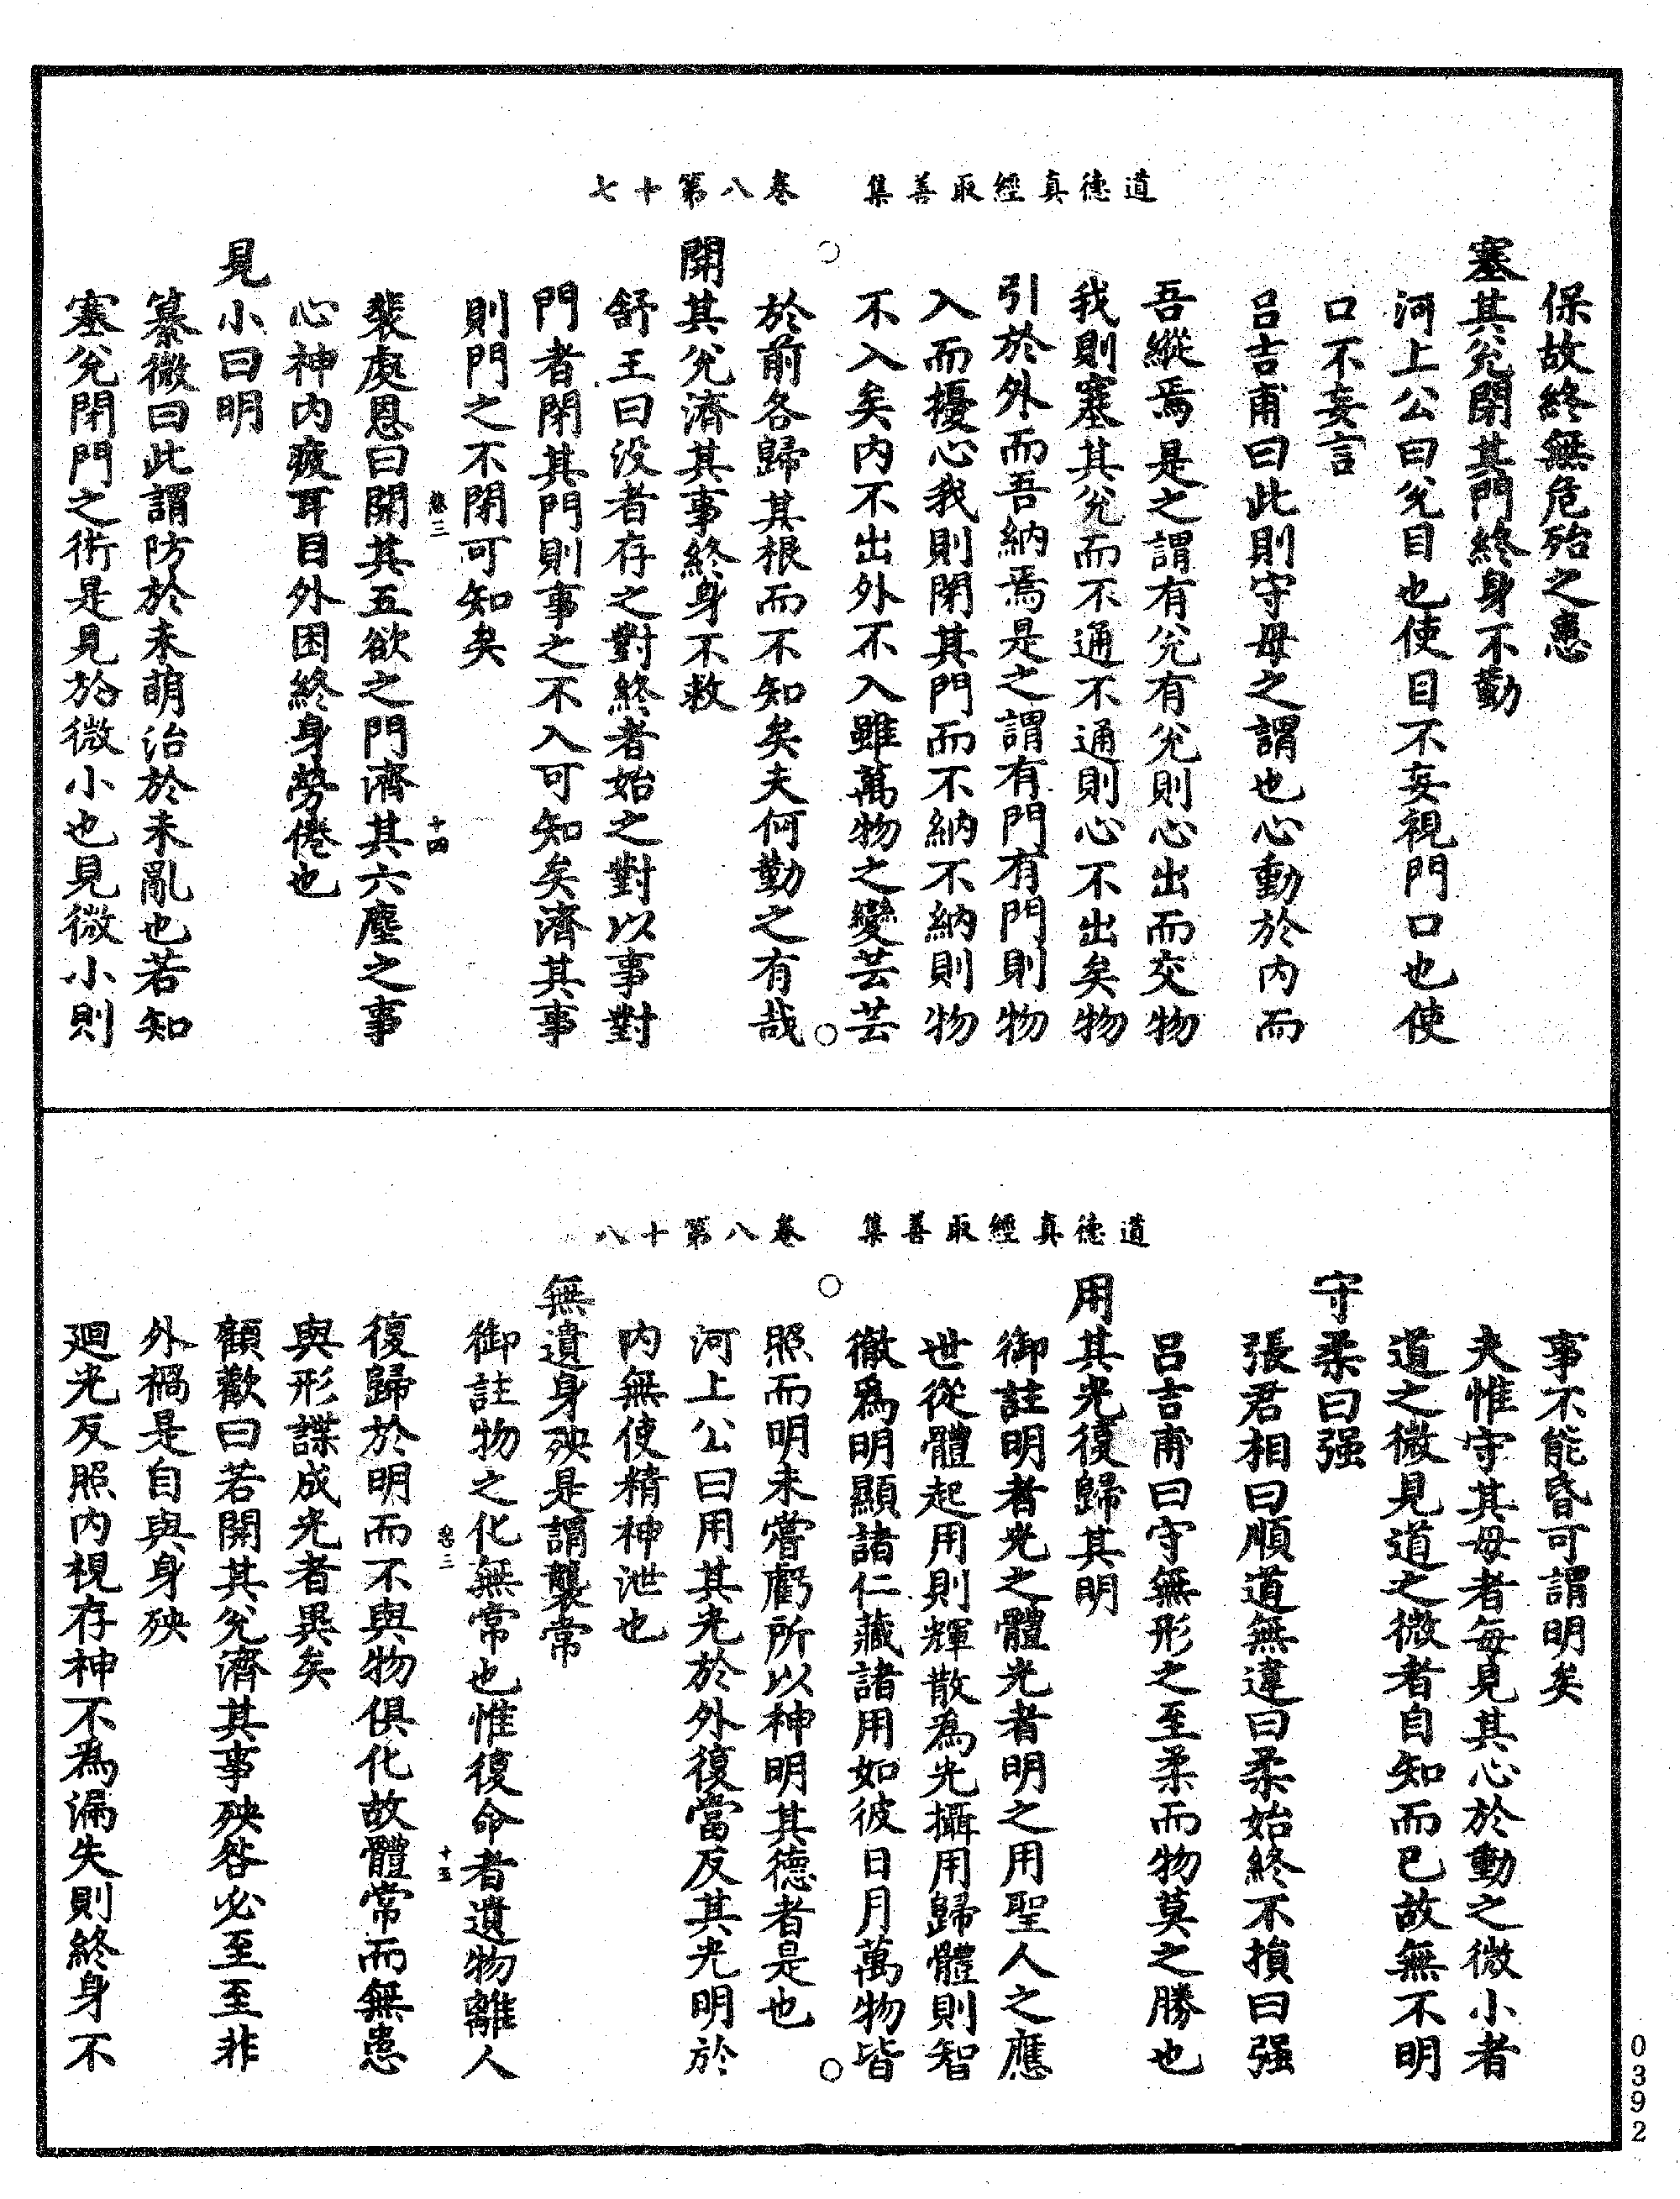 道德真經取善集　卷八第十七
保故終無危殆之患
塞其兊閉其門終身不勤
河上公曰兊目也使目不妄視門口也使
口不妄言
呂吉甫曰此則守母之謂也心動於内而
吾縱焉是之謂有兊有兊則心出而交物
我則塞其兊而不通不通則心不出矣物
引於外而吾納焉是之謂有門有門則物
入而擾心我則閉其門而不納不納則物
不入矣内不出外不入雖萬物之變芸芸
於前各歸其根而不知矣夫何勤之有哉
開其兊濟其事終身不救
舒王曰没者存之對終者始之對以事對
門者閉其門則事之不入可知矣濟其事
則門之不閉可知矣
裴處恩曰開其五欲之門濟其六塵之事
卷三　十四
心神内疲耳目外困終身勞倦也
見小曰明
纂微曰此謂防於未萌治於未亂也若知
塞兊閉門之術是見於微小也見微小則
道德真經取善集　卷八第十八
事不能昏可謂明矣
夫惟守其母者每見其心於動之微小者
道之微見道之微者自知而已故無不明
守柔曰强
張君相曰順道無違曰柔始終不損曰强
呂吉甫曰守無形之至柔而物莫之勝也
用其光復歸其明
御註明者光之體光者明之用聖人之應
世從體起用則輝散為光攝用歸體則智
徹爲明顯諸仁藏諸用如彼日月萬物皆
照而明未嘗虧所以神明其德者是也
河上公曰用其光於外復當反其光明於
内無使精神泄也
無遺身殃是謂襲常
御註物之化無常也惟復命者遺物離人
卷三　十五
復歸於明而不與物俱化故體常而無患
與形諜成光者異矣
顧歡曰若開其兊濟其事殃咎必至至非
外禍是自與身殃
廻光反照内視存神不為漏失則終身不
0392